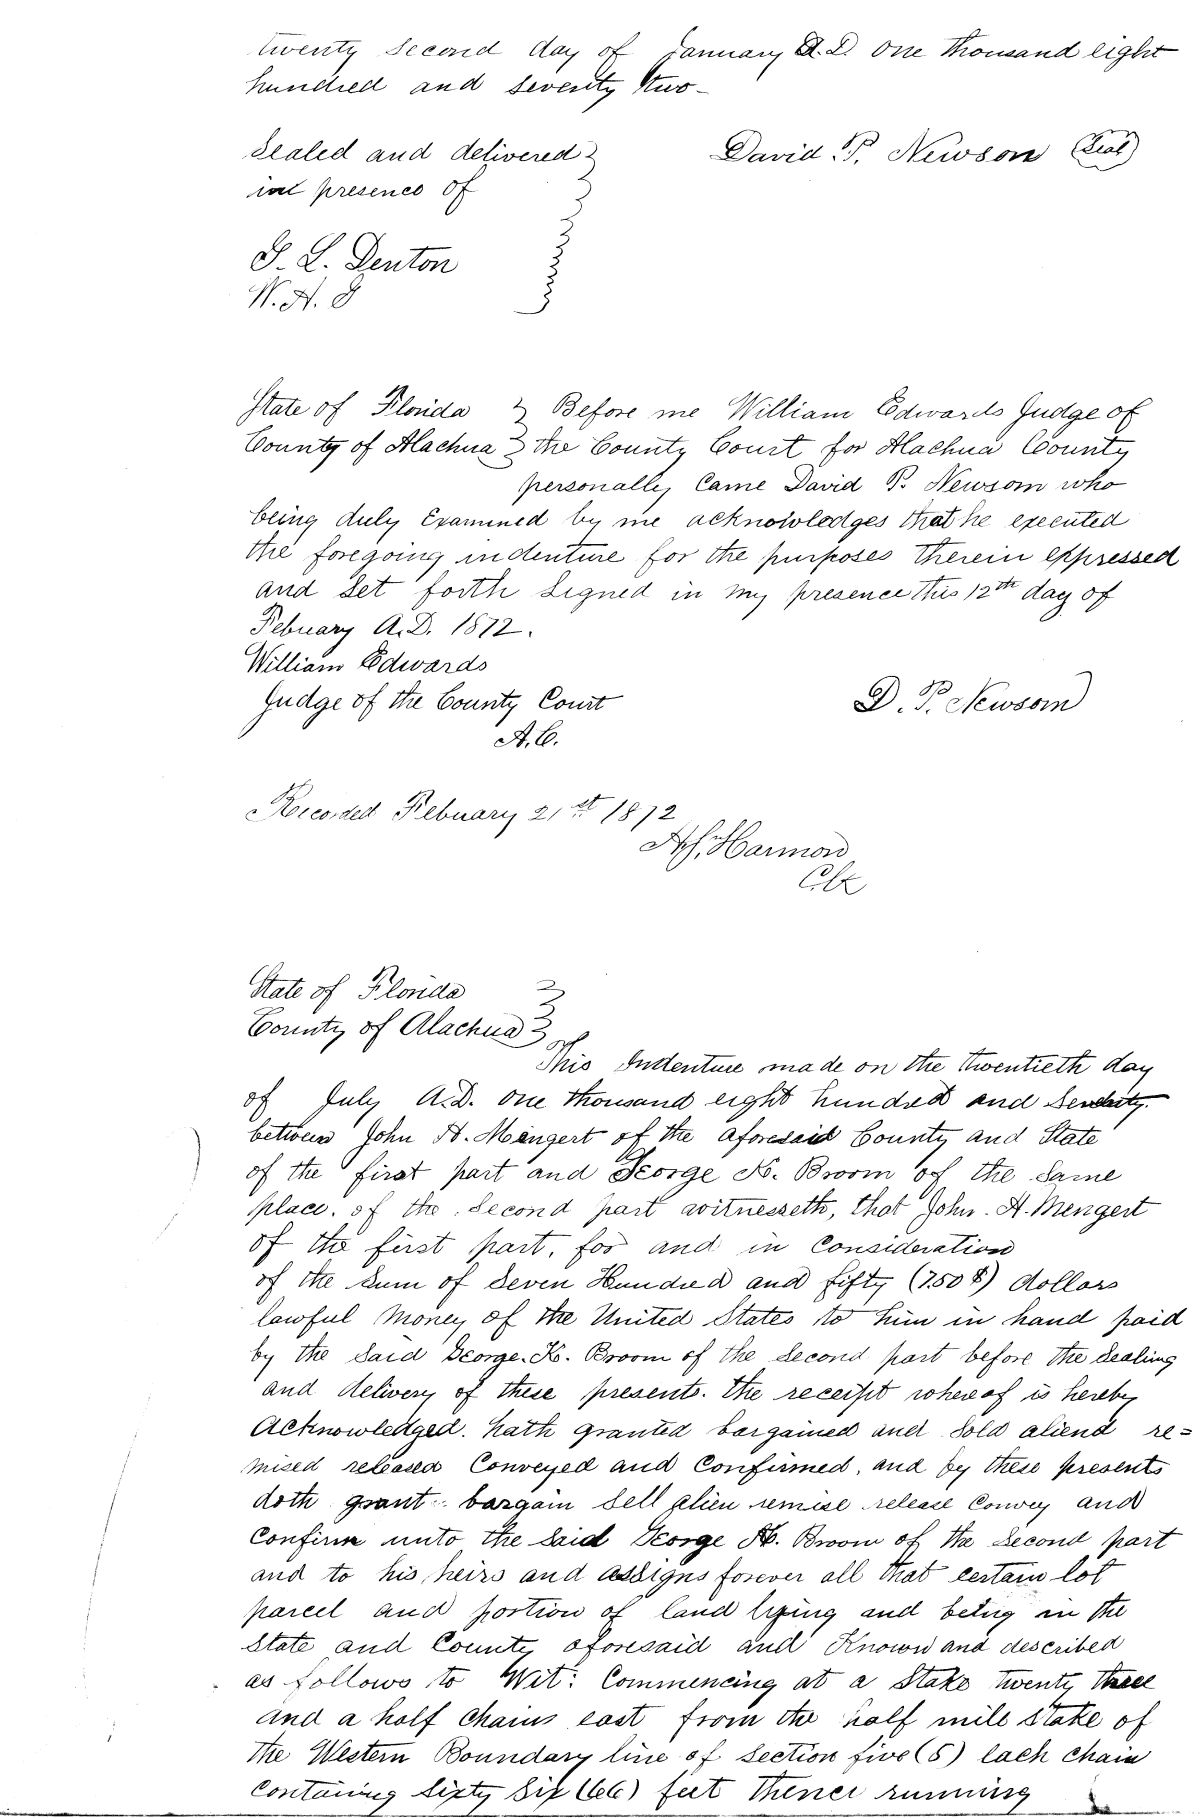 twenty second day of January A.D. One thousand eight
hundred and seventy two-
Sealed and delivered
in presence of
David P. Newsom (Seal)
S. L. Denton
W. A. J
State of Florida } Before me William Edwards Judge of
County of Alachua } the County Court for Alachua County
personally Came David P. Newsom who
being duly Examined by me acknowledges that he executed
the foregoing indenture for the purposes therein expressed
and Set forth Signed in my presence this 12th day of
Febuary A.D. 1872.
William Edwards
Judge of the County Court
A.C.
D. P. Newsom
Recorded Febuary 21st 1872
Harmon
Clk
State of Florida }
County of Alachua }
This Indenture made on the twentieth day
of July A.D. One thousand eight hundred and Seventy.
between John A. Mengert of the aforesaid County and State
of the first part and George K. Broom of the Same
place. of the Second part witnesseth, that John. A. Mengert
of the first part, for and in Consideration
of the Sum of Seven Hundred and fifty (750 $) dollars
lawful Money of the United States to him in hand paid
by the Said George. K. Broom of the Second part before the Sealing
and delivery of these presents. the receipt whereof is hereby
Acknowledged. hath granted bargained and Sold aliend re=
mised released Conveyed and Confirmed, and by these presents
doth grant bargain Sell alien remise release Convey and
Confirm unto the Said George K. Broom of the Second part
and to his heirs and assigns forever all that certain lot
parcel and portion of land lying and being in the
State and County aforesaid and Known and described
as follows to Wit: Commencing at a Stake twenty three
and a half Chains east from the half mile Stake of
the Western Boundary line of Section five (5) each Chain
Containing Sixty Six (66) feet thence running